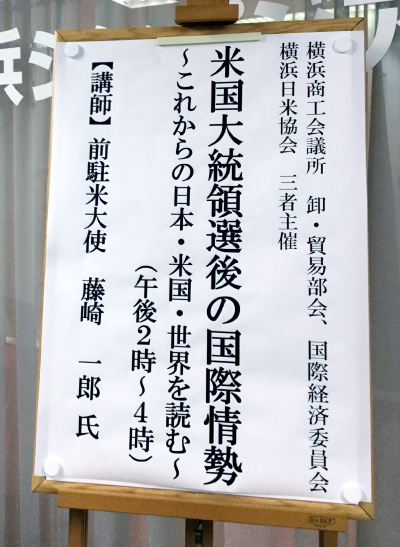 横浜商工会議所　卸・貿易部会、国際経済委員会
横浜日米協会　三者主催
米国大統領選後の国際情勢
～これからの日本・米国・世界を読む～
（午後２時～４時）
【講師】前駐米大使　藤崎　一郎 氏